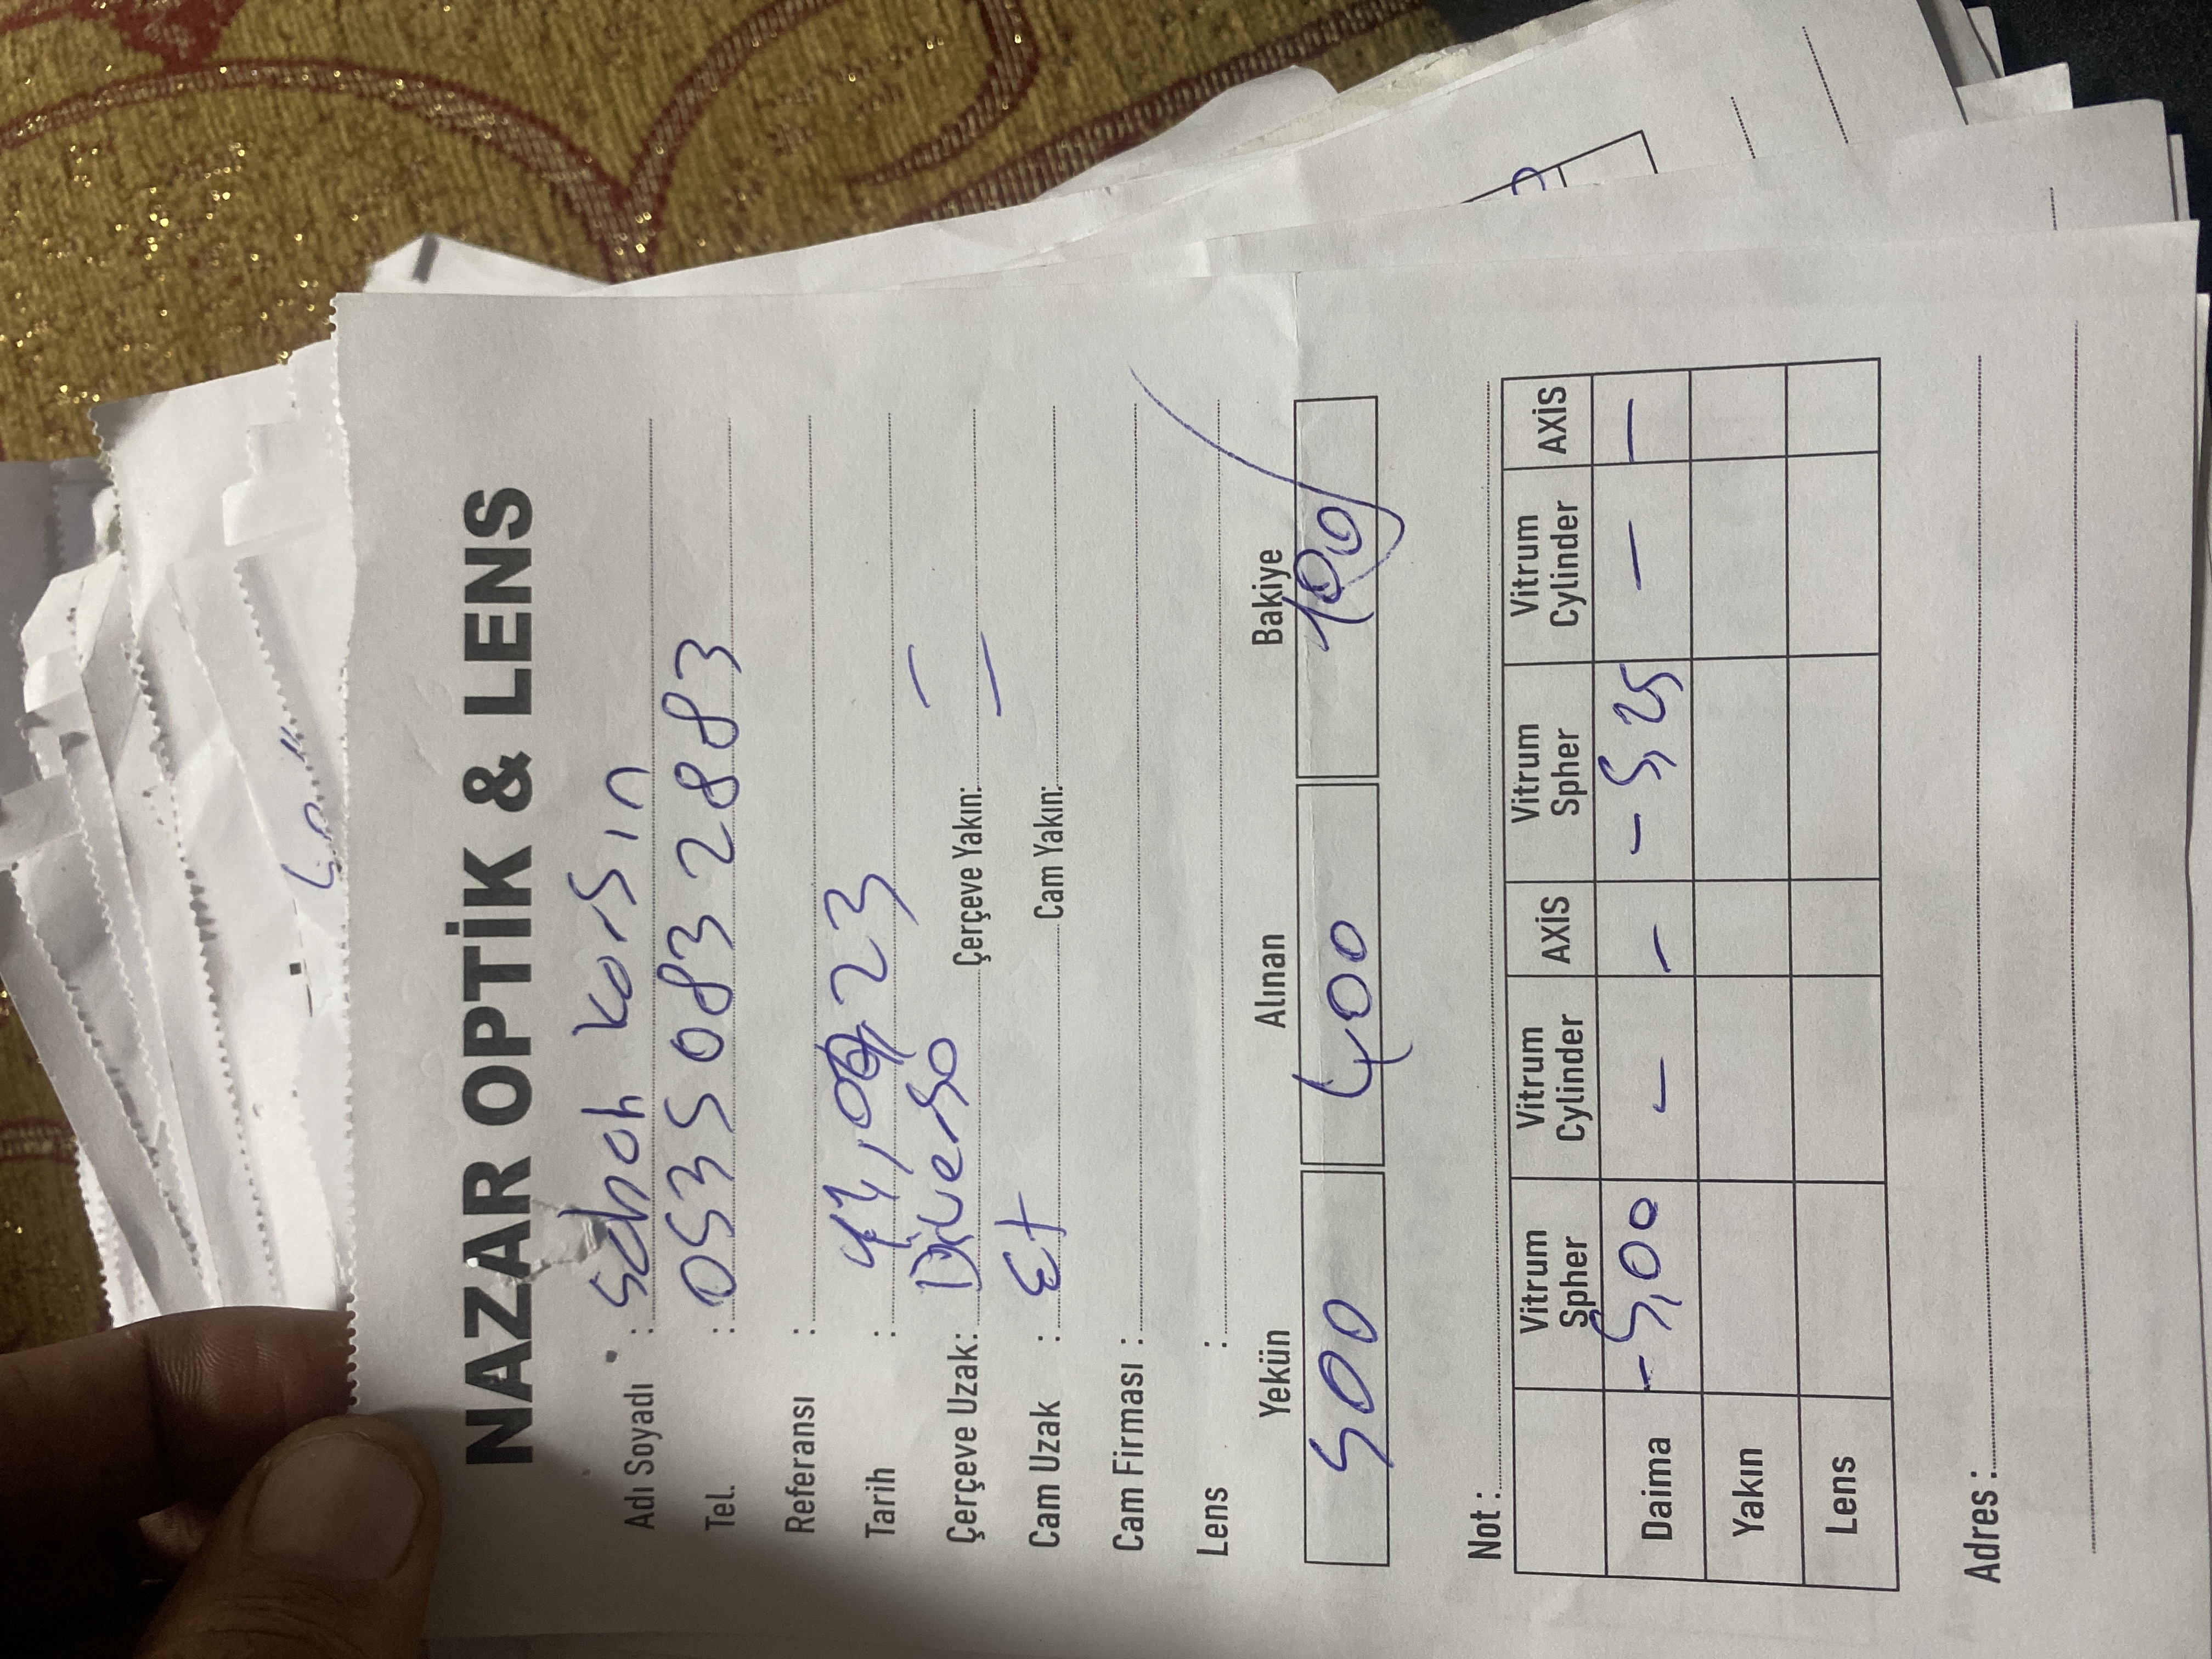 NAZAR OPTİK & LENS
Adı Soyadı : Sabah Karsın
Tel. : 0535 083 2883
Referansı :
Tarih : 23
Çerçeve Uzak: Diverso Çerçeve Yakın: —
Cam Uzak : Cam Yakın: —
Cam Firması :
Lens :
Yekün Alınan Bakiye
500 400 100
Not :
Vitrum Spher Vitrum Cylinder AXİS Vitrum Spher Vitrum Cylinder AXİS
Daima -5,00 — — -5,25 — —
Yakın
Lens
Adres :